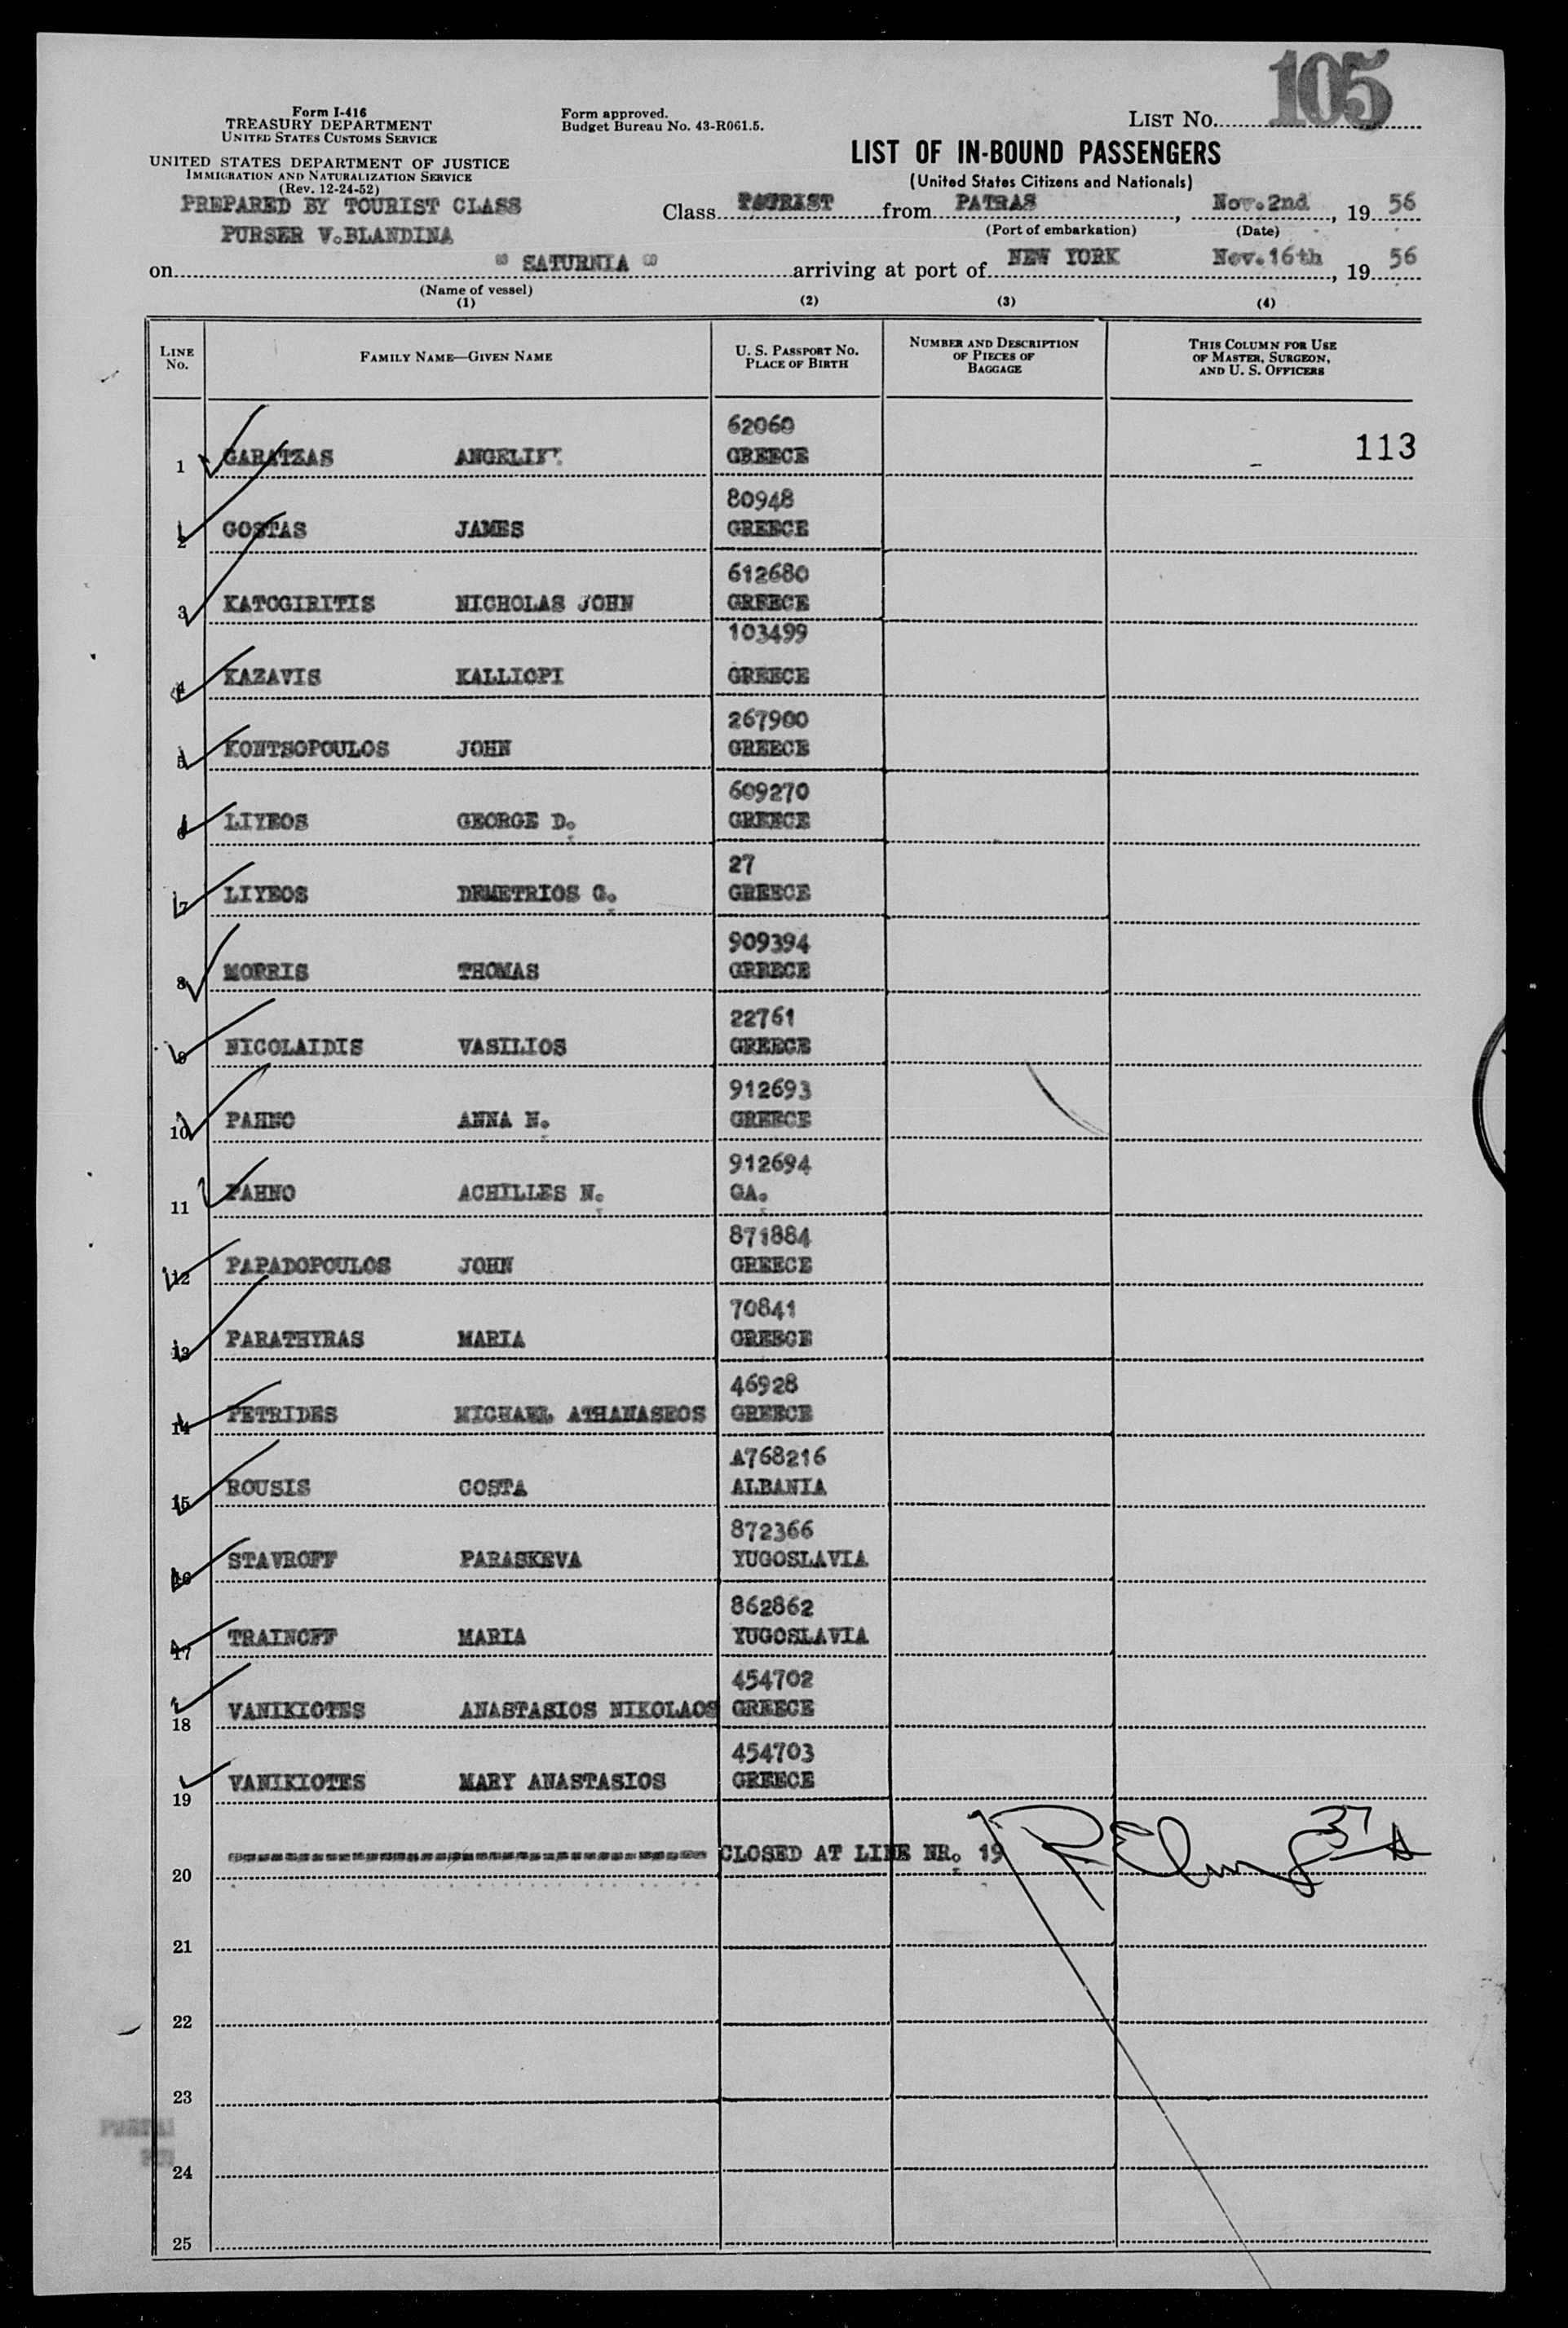 105
Form I-416
TREASURY DEPARTMENT
UNITED STATES CUSTOMS SERVICE
Form approved.
Budget Bureau No. 43-R061.5.
LIST NO.
UNITED STATES DEPARTMENT OF JUSTICE
IMMIGRATION AND NATURALIZATION SERVICE
(Rev. 12-24-52)
LIST OF IN-BOUND PASSENGERS
(United States Citizens and Nationals)
PREPARED BY TOURIST CLASS
PURSER V.BLANDINA
Class TOURIST from PATRAS, Nov.2nd, 19 56
(Port of embarkation) (Date)
on " SATURNIA " arriving at port of NEW YORK Nov.16th, 19 56
(Name of vessel)
(1) (2) (3) (4)
LINE NO. FAMILY NAME—GIVEN NAME U. S. PASSPORT NO. PLACE OF BIRTH NUMBER AND DESCRIPTION OF PIECES OF BAGGAGE THIS COLUMN FOR USE OF MASTER, SURGEON, AND U. S. OFFICERS
62060
1 GARATZAS GREECE 113
80948
2 GOSTAS JAMES GREECE
612680
3 KATOGIRITIS NICHOLAS JOHN GREECE
103499
4 KAZAVIS KALLIOPI GREECE
267900
5 KONTSOPOULOS JOHN GREECE
609270
6 LIYEOS GEORGE D. GREECE
27
7 LIYEOS DEMETRIOS G. GREECE
909394
8 MORRIS THOMAS GREECE
22761
9 NICOLAIDIS VASILIOS GREECE
912693
10 PAHNO ANNA N. GREECE
912694
11 PAHNO ACHILLES N. GA.
871884
12 PAPADOPOULOS JOHN GREECE
70841
13 PARATHYRAS MARIA GREECE
46928
14 PETRIDES MICHAEL ATHANASEOS GREECE
A768216
15 ROUSIS COSTA ALBANIA
872366
16 STAVROFF PARASKEVA YUGOSLAVIA
862862
17 TRAINOFF MARIA YUGOSLAVIA
454702
18 VANIKIOTES ANASTASIOS NIKOLAOS GREECE
454703
19 VANIKIOTES MARY ANASTASIOS GREECE
20 CLOSED AT LINE NR. 19
21
22
23
24
25